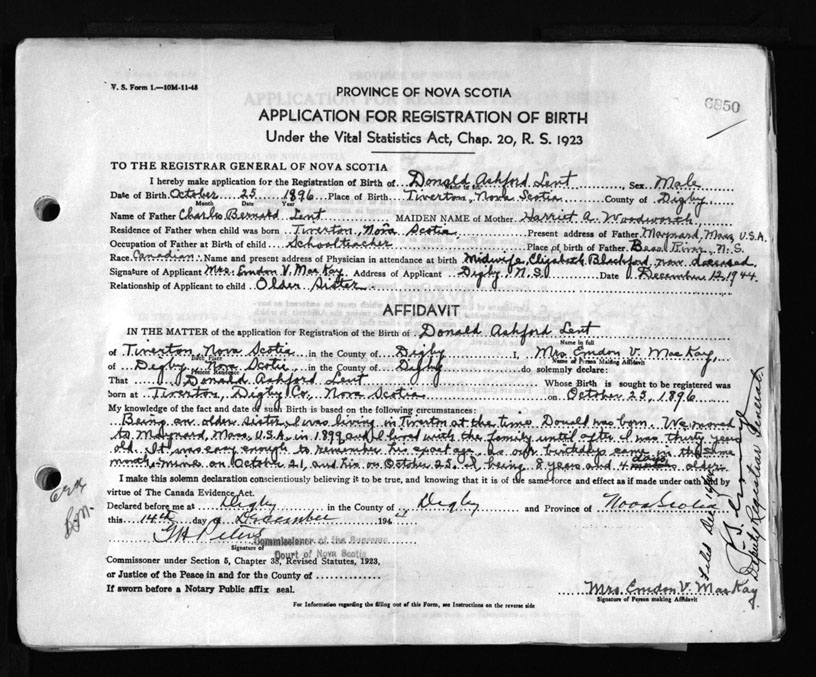 V. S. Form 1.—10M-11-43
PROVINCE OF NOVA SCOTIA
6850
APPLICATION FOR REGISTRATION OF BIRTH
Under the Vital Statistics Act, Chap. 20, R. S. 1923
TO THE REGISTRAR GENERAL OF NOVA SCOTIA
I hereby make application for the Registration of Birth of Donald Ashford Lent, Sex Male
Name in full
Date of Birth October 25 1896 Place of Birth Tiverton, Nova Scotia County of Digby
Month Day Year
Name of Father Charles Bernard Lent MAIDEN NAME of Mother Harriet A. Woodworth
Residence of Father when child was born Tiverton, Nova Scotia Present address of Father Maynard, Mass, U.S.A.
Occupation of Father at Birth of child Schoolteacher Place of birth of Father Bass River, N.S.
Race Canadian Name and present address of Physician in attendance at birth Midwife, Elizabeth Blackford, now deceased
Signature of Applicant Mrs. Emdon V. MacKay Address of Applicant Digby N.S. Date December 12, 1944.
Relationship of Applicant to child Older Sister
AFFIDAVIT
IN THE MATTER of the application for Registration of the Birth of Donald Ashford Lent
Name in full
of Tiverton, Nova Scotia in the County of Digby I, Mrs. Emdon V. MacKay,
Birth Place Name of Person Making Affidavit
of Digby, Nova Scotia in the County of Digby do solemnly declare:
Present Residence
That Donald Ashford Lent Whose Birth is sought to be registered was
born at Tiverton, Digby Co., Nova Scotia on October 25, 1896.
My knowledge of the fact and date of such Birth is based on the following circumstances:
Being an older sister, I was living in Tiverton at the time Donald was born. We moved
to Maynard, Mass, U.S.A. in 1899 and I lived with the family until after I was thirty years
old. It was easy enough to remember his age as our birthdays came in the same
month, mine on October 21, and his on October 25. I being 8 years and 4 days older.
I make this solemn declaration conscientiously believing it to be true, and knowing that it is of the same force and effect as if made under oath and by
virtue of The Canada Evidence Act.
Declared before me at Digby in the County of Digby and Province of Nova Scotia
this 14th day of December 194
Signature of Commissioner of the Supreme
Court of Nova Scotia
Commissioner under Section 5, Chapter 38, Revised Statutes, 1923,
or Justice of the Peace in and for the County of
If sworn before a Notary Public affix seal.
Mrs. Emdon V. MacKay
Signature of Person making Affidavit
For Information regarding the filling out of this Form, see Instructions on the reverse side
Deputy Registrar General.